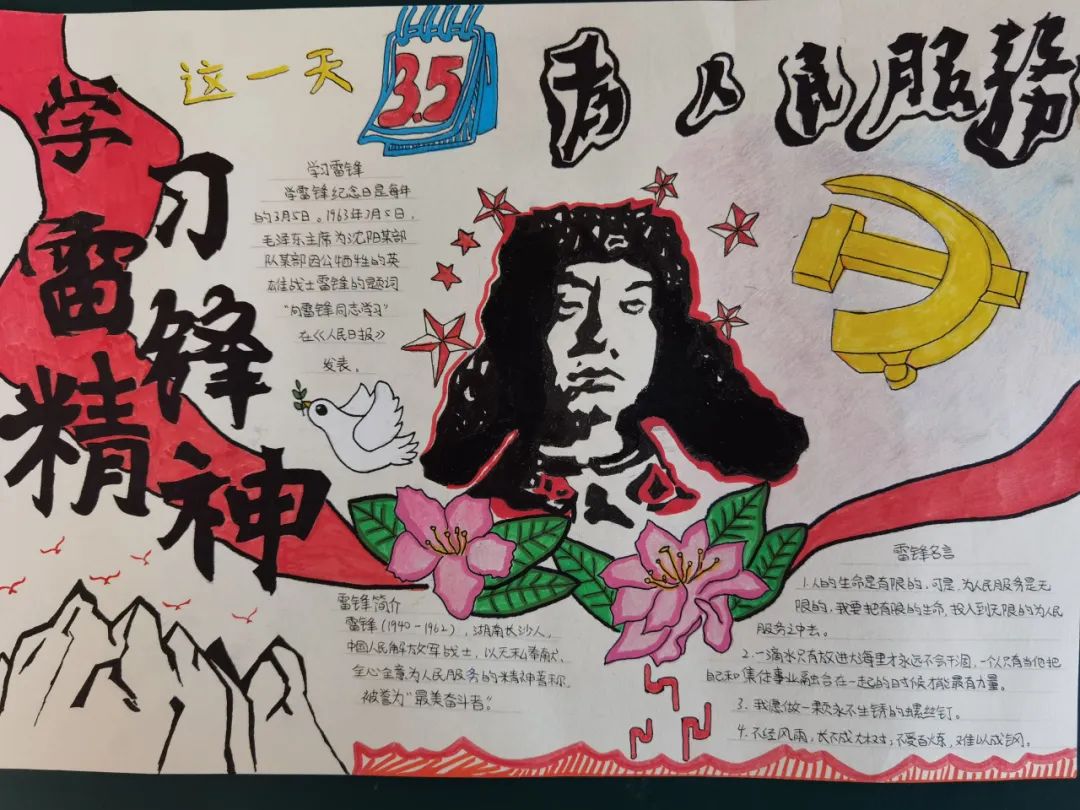 学习雷锋精神
这一天
3.5
为人民服務
学习雷锋
学雷锋纪念日是每年
的3月5日。1963年3月5日,
毛泽东主席为沈阳某部
队某部因公牺牲的英
雄战士雷锋的题词
“向雷锋同志学习”
在《人民日报》
发表。
雷锋简介
雷锋(1940-1962),湖南长沙人,
中国人民解放军战士,以无私奉献、
全心全意为人民服务的精神著称,
被誉为“最美奋斗者”。
雷锋名言
1.人的生命是有限的,可是,为人民服务是无
限的,我要把有限的生命,投入到无限的为人民
服务之中去。
2.一滴水只有放进大海里才永远不会干涸,一个人只有当他把
自己和集体事业融合在一起的时候才能最有力量。
3.我愿做一颗永不生锈的螺丝钉。
4.不经风雨,长不成大树;不受百炼,难以成钢。